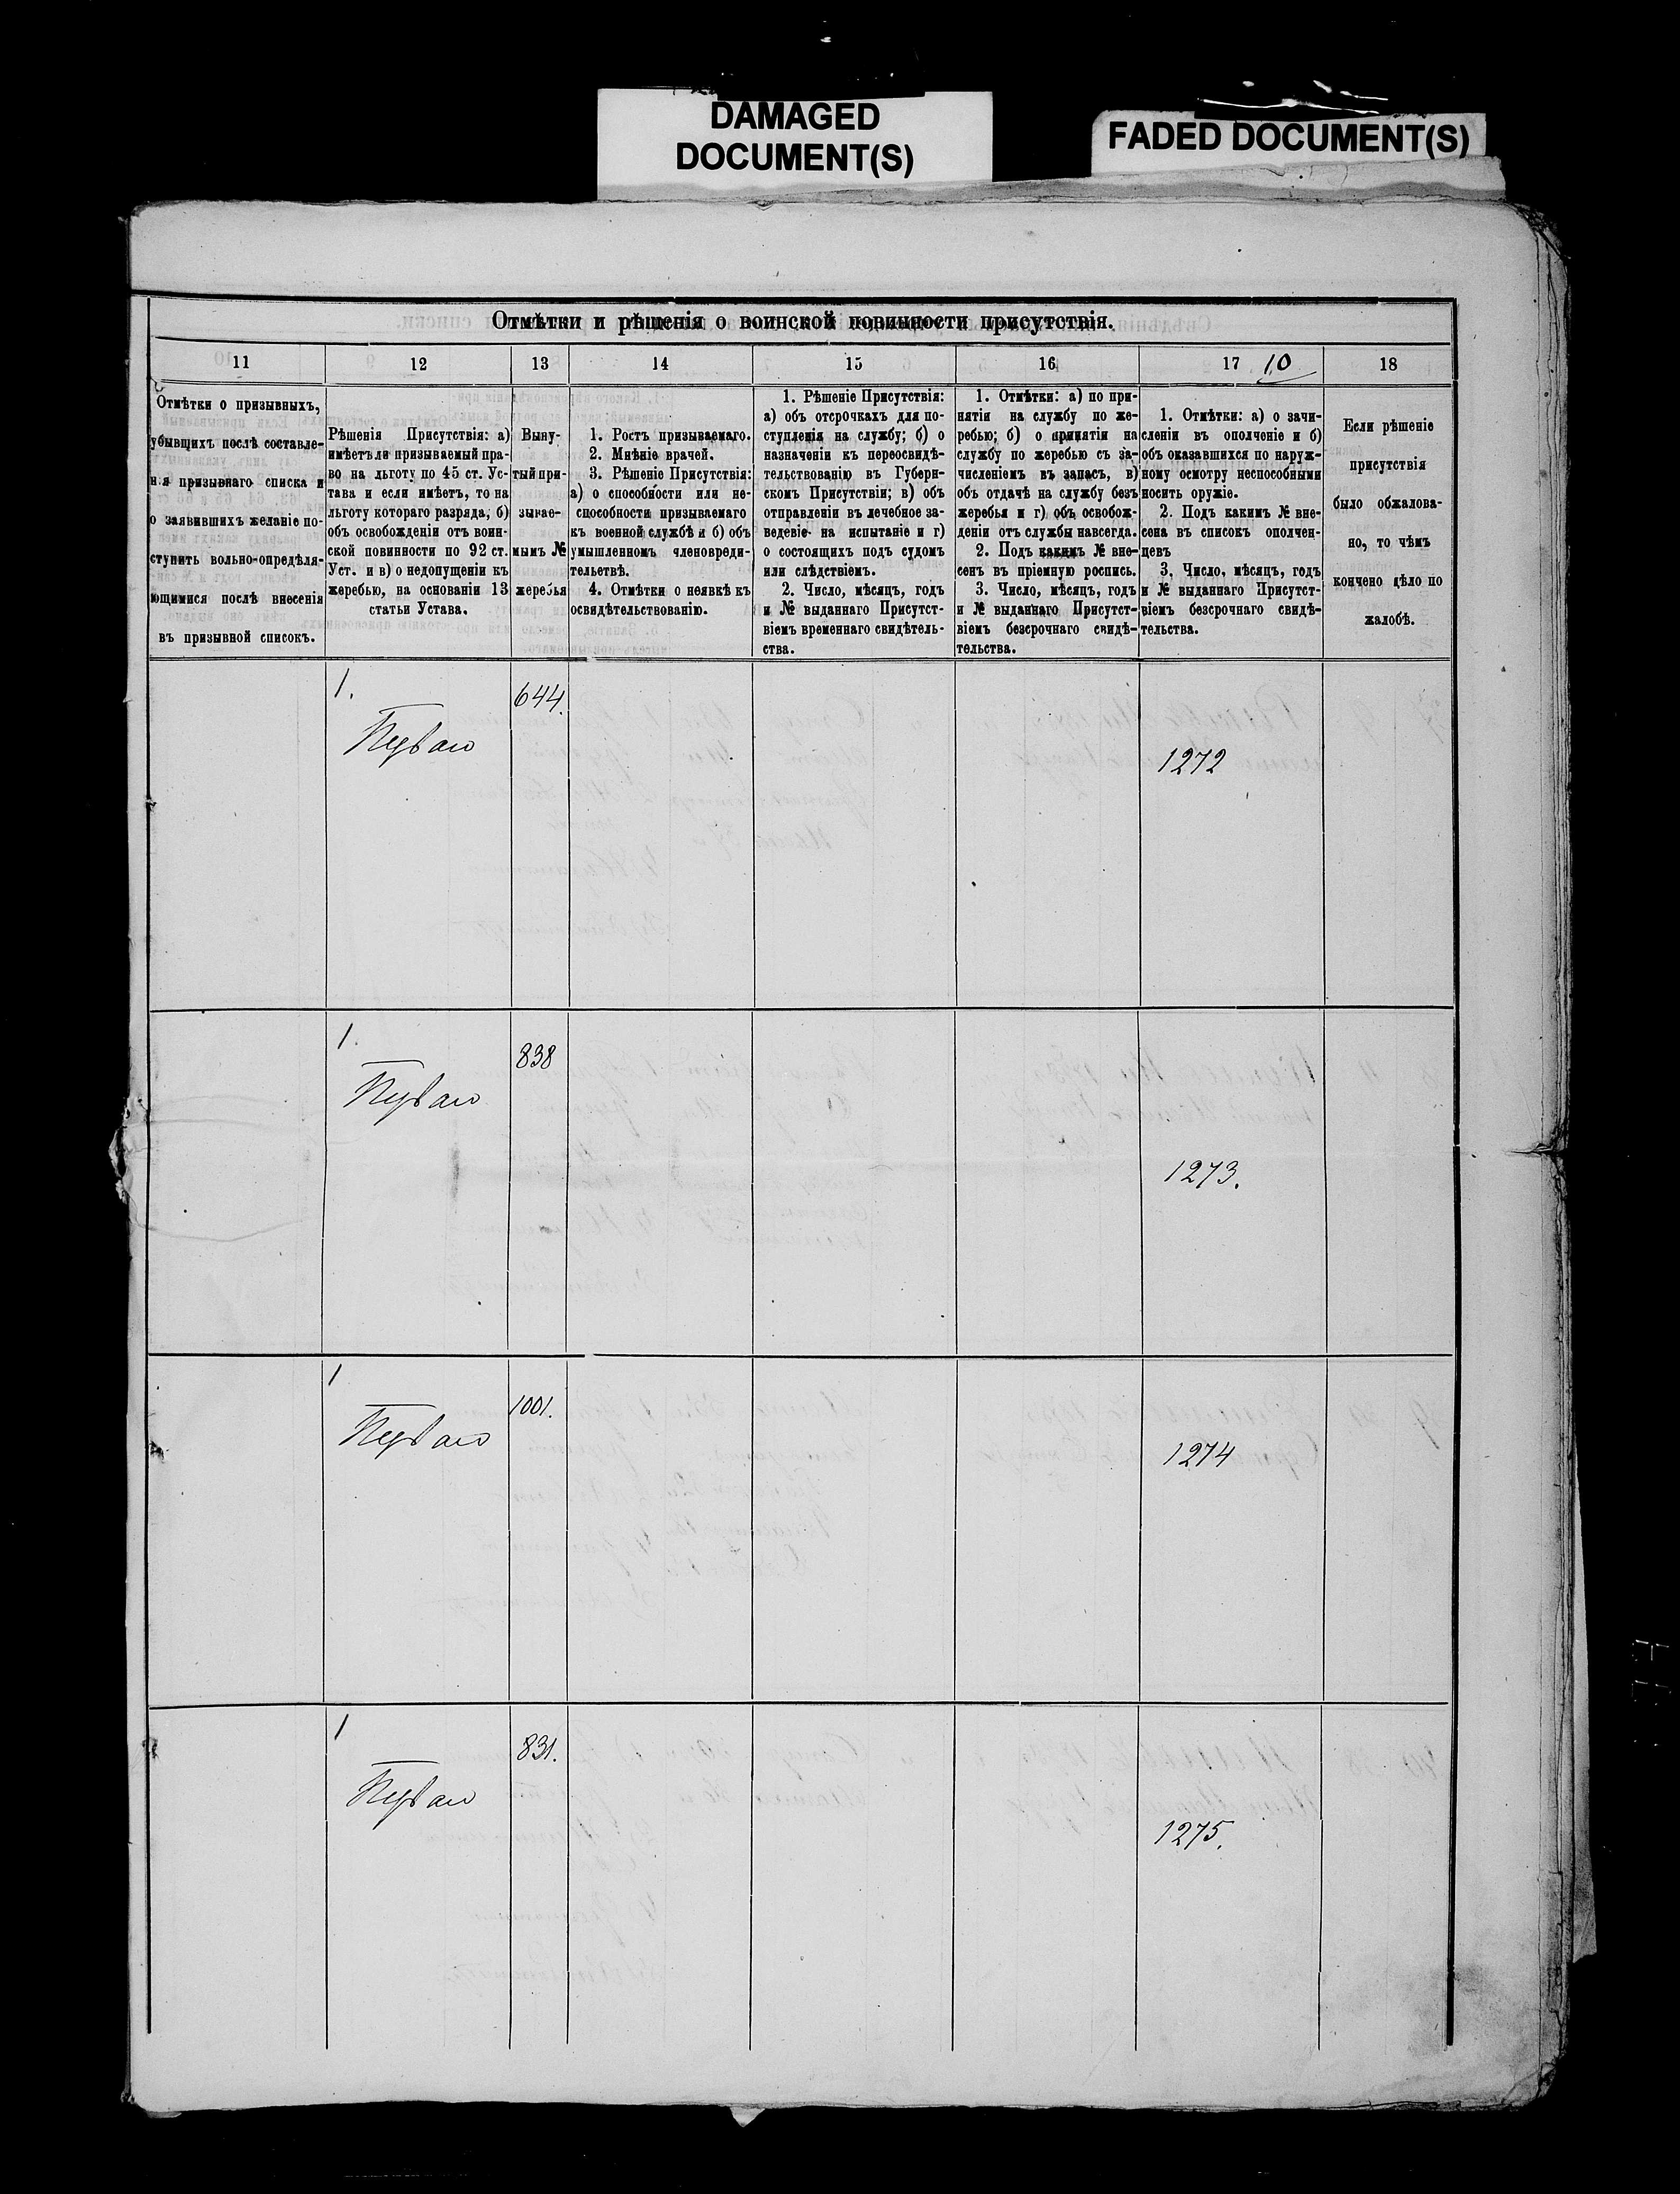 DAMAGED
DOCUMENT(S)
FADED DOCUMENT(S)
Отмѣтки и рѣшенія о воинской повинности присутствія.
11
12
13
14
15
16
17
10
18
Отмѣтки о призывныхъ,
убывшихъ послѣ составле-
нія призывнаго списка и
о заявившихъ желаніе по-
ступить вольно-опредѣля-
ющимися послѣ внесенія
въ призывной списокъ.
Рѣшенія Присутствія: а)
имѣетъ ли призываемый пра-
во на льготу по 45 ст. Ус-
тава и если имѣетъ, то на
льготу котораго разряда, б)
объ освобожденіи отъ воин-
ской повинности по 92 ст.
Уст. и в) о недопущеніи къ
жеребью, на основаніи 13
статьи Устава.
Выну-
тый при-
зывае-
мымъ №
жеребья
1. Ростъ призываемаго.
2. Мнѣніе врачей.
3. Рѣшеніе Присутствія:
а) о способности или не-
способности призываемаго
къ военной службѣ и б) объ
умышленномъ членовреди-
тельствѣ.
4. Отмѣтки о неявкѣ къ
освидѣтельствованію.
1. Рѣшеніе Присутствія:
а) объ отсрочкахъ для по-
ступленія на службу; б) о
назначеніи къ переосвидѣ-
тельствованію въ Губерн-
скомъ Присутствіи; в) объ
отправленіи въ лечебное за-
веденіе на испытаніе и г)
о состоящихъ подъ судомъ
или слѣдствіемъ.
2. Число, мѣсяцъ, годъ
и № выданнаго Присутст-
віемъ временнаго свидѣтель-
ства.
1. Отмѣтки: а) по при-
нятіи на службу по же-
ребью; б) о принятіи на
службу по жеребью съ за-
численіемъ въ запасъ, в)
объ отдачѣ на службу безъ
жеребья и г) объ освобож-
деніи отъ службы навсегда.
2. Подъ какимъ № вне-
сенъ въ пріемную роспись.
3. Число, мѣсяцъ, годъ
и № выданнаго Присутст-
віемъ безсрочнаго свидѣ-
тельства.
1. Отмѣтки: а) о зачи-
сленіи въ ополченіе и б)
объ оказавшихся по наруж-
ному осмотру неспособными
носить оружіе.
2. Подъ какимъ № вне-
сена въ списокъ ополчен-
цевъ
3. Число, мѣсяцъ, годъ
и № выданнаго Присутст-
віемъ безсрочнаго свидѣ-
тельства.
Если рѣшеніе
присутствія
было обжалова-
но, то чѣмъ
кончено дѣло по
жалобѣ.
1.
Перваго
644.
1272
1.
Перваго
838
1273.
1
Перваго
1001.
1274
1
Перваго
831.
1275.